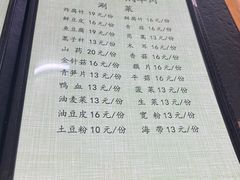 涮 菜
炸腐竹 19元/份 鲜腐竹 16元/份
鲜豆皮 16元/份 香菜 16元/份
鱼豆腐 19元/份
蒿子秆 13元/份 木耳 16元/份
山药 20元/份 香菇 16元/份
金针菇 16元/份 藕片 16元/份
青笋片 13元/份 平菇 16元/份
鸭血 13元/份 菠菜 13元/份
油麦菜 13元/份 生菜 13元/份
油豆皮 16元/份 宽粉 13元/份
土豆粉 10元/份 海带 13元/份